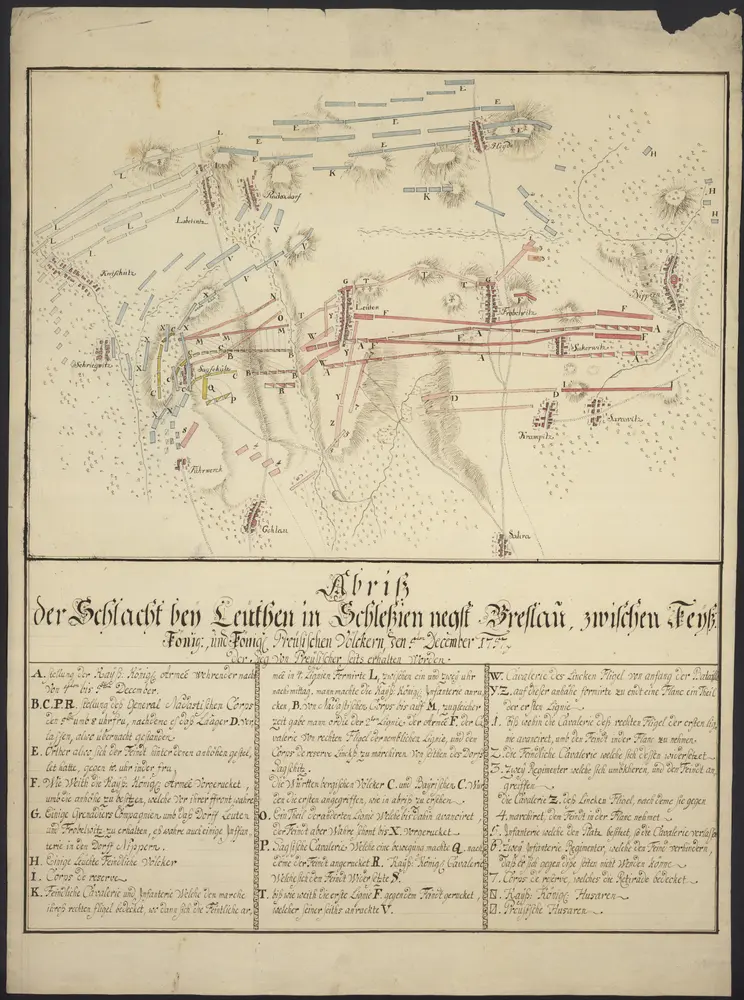 E
E
E
E
E
E
E
E
Heyde
L
L
L
L
L
K
K
K
H
H
H
Lobetintz
Radaxdorf
V
V
V
V
Kreischütz
X
X
X
X
Schriegwitz
Sagschütz
Leuten
G
T
T
T
G
Frobelwitz
Nippern
F
F
E
A
A
A
A
N
O
M
M
M
T
W
Y
Y
Y
Z
C
C
C
B
B
B
P
Q
R
D
D
I
Sakerwitz
Krampitz
Sarawitz
S
4
4
3
Fuhrwerck
Gohlau
Sahra
Abriß
der Schlacht bey Leuthen in Schleßien negst Breslau, zwischen Keyß.
König: und König Preüsischen Völckern, den 5ten December 1757.
der Sieg von Preusischer seits erhalten worden.
A. stellung der Kayß. König. Armée wehrender nacht
von 4ten bis 5ten December.
B.C.P.R. stellung des General Nadastischen Corps
den 5ten um 8 uhr fru, nachdeme es das Lager D. ver,
lassen, alwo übernacht gestanden
E. Orther alwo sich der Feind hinter denen anhöhen gestel,
let hatte, gegen uhr in der fru
F. Wie Weith die Kayß. König. Armée Vorgerucket,
umb die anhöhe zu besitzen, welche vor ihrer front wahre
G. Einige Grenadiers Compagnien umb das Dorff Leuten
und Frobelwitz zu erhalten, es wahre auch einige Infan,
terie in dem Dorff Nippern.
H. Einige Leuchte Feindliche Völcker
I. Corps de reserve
K. Feindliche Cavalerie und Infanterie Welche den marche
ihres rechten flügel bedecket, wo dann sich die Feintliche ar,
mée in 4 Lignien Formirte L, zwischen ein und zwey uhr
nach mittag, mann machte die Kayß. König. Infanterie anru,
cken, B. von Nadastischen Corps bis auf M, zugleicher
zeit gabe mann ordre der 2ten Lignie der Armée F, der Ca
valerie von rechten Flügel der ersten Lignie, und den
Corps de reserve Linckß zu marchiren von seithen des Dorfs
Sagschitz.
Die Württenbergischen Völcker C. und Bayrischen C. Wur
den die ersten angegriffen, wie in abriß zu ersehen.
O. Ein Theil der anderten Lignie Welche bis dahin avanciret,
der Feind aber Wahre schont bis X. Vorgerucket
P. Sächsische Cavalerie Welche eine bewegung machte Q, nach
deme der Feind angerucket R. Kayß. König. Cavalerie
Welche sich den Feindt Widersetzte S.
T. biß wie weith die erste Lignie F. gegen dem Feindt gerucket,
welcher seiner seiths anruckte V.
W. Cavalerie des Lincken Flügel von anfang der Bataille
Y.Z. auf dieser anhöhe formirte zu endt eine Flanc ein Theil
der ersten Lignie
1. Bis wohin die Cavalerie deß rechten Flügel der ersten lig,
nie avanciret, umb den Feindt in der Flanc zu nehmen.
2. Die Feindliche Cavalerie welche sich diesen widersetzet
3. Zwey Regimenter welche sich umbkehren, und den Feindt an
greiffen
die Cavalerie Z. deß Lincken Flügel, nach deme sie gegen
4. marchiret, den Feindt in der Flanc nehmet
5. Infanterie welche den Platz besitzet, so die Cavalerie verlassen
6. Zwey Infanterie Regimenter, welche den Feindt verhindern,
daß er sich gegen dise seiten nicht wenden könne
7. Corps de reserve, welches die Retirade bedecket
8. Kayß. König. Husaren
9. Preüsische Husaren